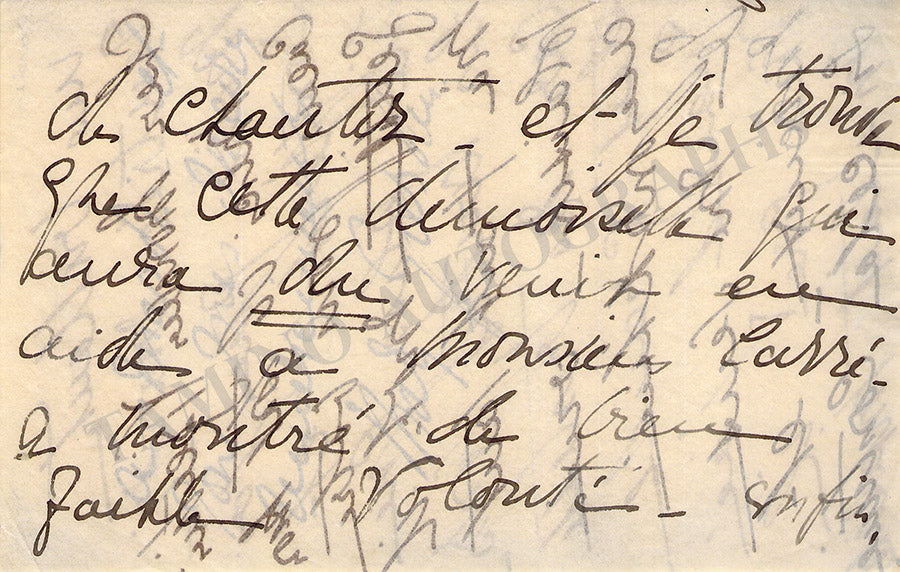 de chanter _ et je trouve
que cette demoiselle qui
aura du venir en
aide à Monsieur Carré _
a montré de bien
faible Volonté _ enfin,
TAMINO AUTOGRAPHS